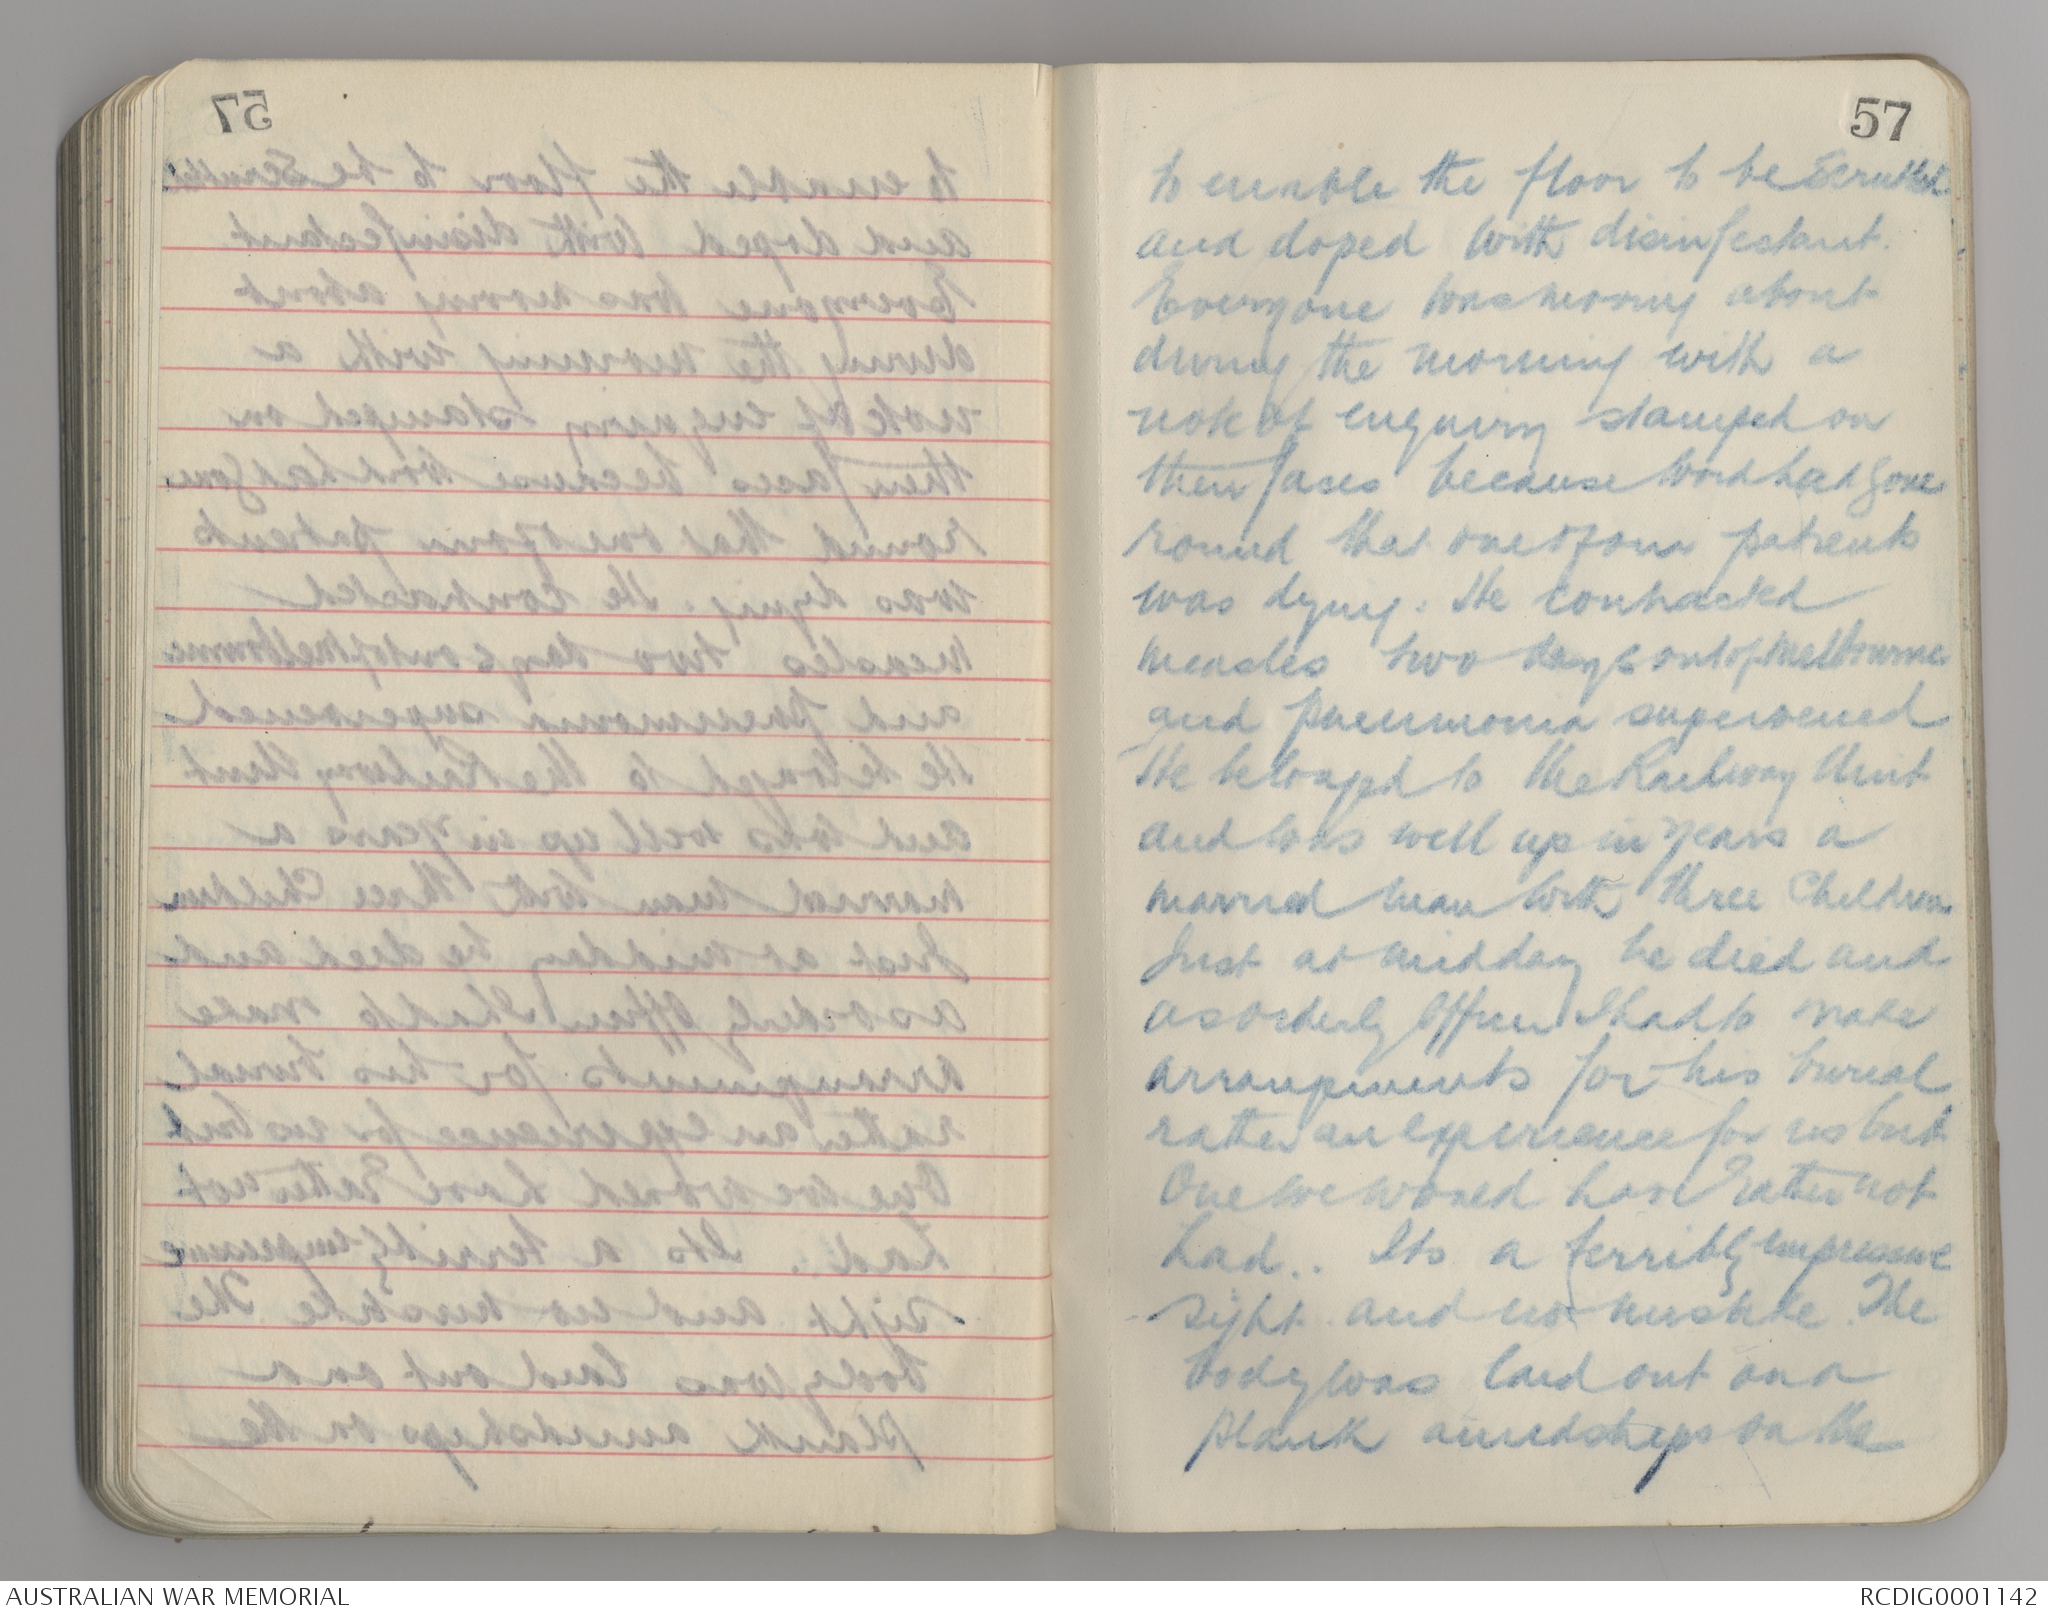 57
to enable the floor to be Scrubbed
and doped with disinfectant.
Everyone was moving about
during the morning with a
note of enquiry stamped on
their faces because word had gone
round that one of our patients
was dying. He contracted
measles two days out of Melbourne
and pneumonia supervened
He belonged to the Railway Unit
and was well up in years a
married man with three Children
Just at midday he died and
as orderly Officer I had to make
arrangements for his burial
rather an experience for us but
One we would have rather not
had.. Its a terribly impressive
sight and no mistake. The
body was laid out on a
plank amidships on the
AUSTRALIAN WAR MEMORIAL
RCDIG0001142